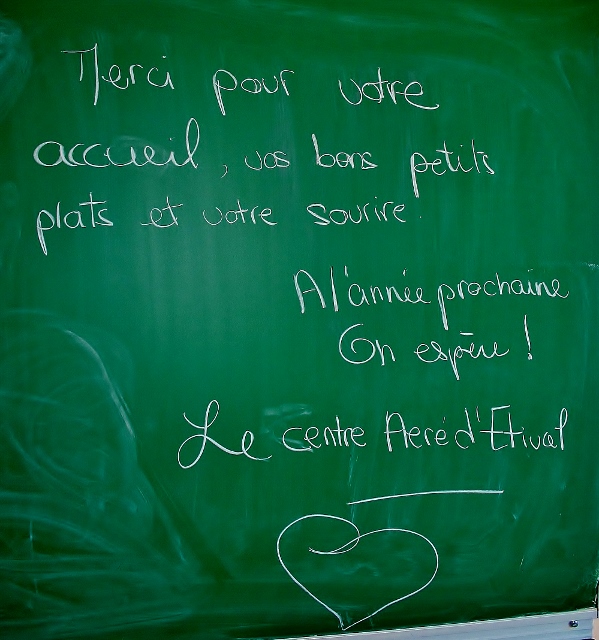 Merci pour votre
accueil, vos bons petits
plats et votre sourire.
A l'année prochaine
On espère !
Le centre Aeré d'Etival